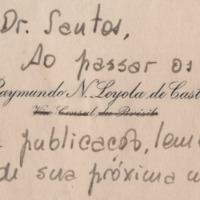 Dr. Santos,
Ao passar os
Raymundo N. Loyola de Cast
Vice Consul do Brasil
publicação,
de sua próxima